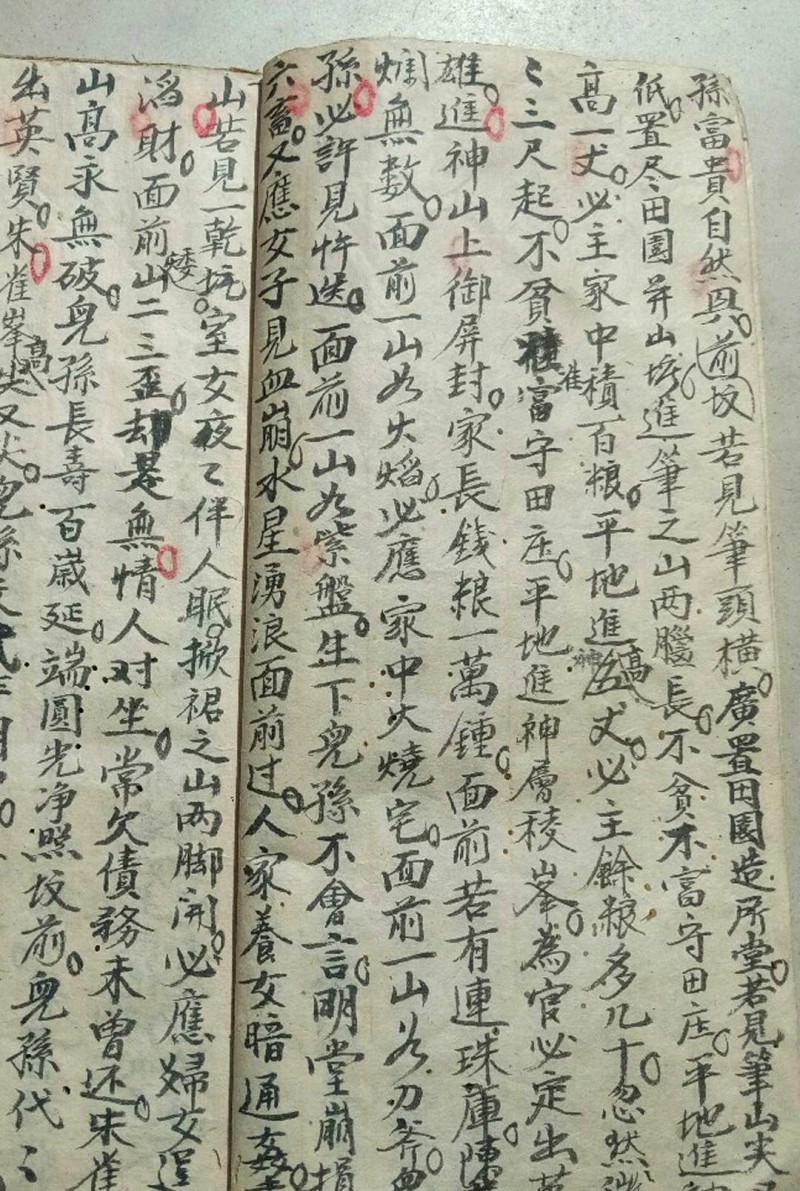 孫富貴自然興。前坟若見筆頭橫。廣置田園造所堂。若見筆山尖
低。置尽田園并山塲。進筆之山两腦長。不貧不富守田庄。平地進
高一丈。必主家中積百粮。平地進神高丈。必主餘粮多几十。忽然
〻三尺起。不貧準富守田庄。平地進神層稜峯。為官必定出英
雄。進神山上御屏封。家長錢粮一萬鍾。面前若有連珠庫。陳
爛無数。面前一山如火焰。必應家中火燒宅。面前一山如刃斧。
孫必許見忤逆。面前一山如紫盤。生下兒孫不會言。明堂崩損
六畜。又應女子見血崩。水星湧浪面前过。人家養女暗通姦。
山若見一乾坑。室女夜〻伴人眠。掀裙之山两脚開。必應婦女
滔財。面前矮山二三歪。却是無情人对坐。常欠債務未曾还。朱雀
山高永無破。兒孫長壽百歲延。端圓光净照坟前。兒孫代〻
出英賢。朱雀峯高尖又尖。兒孫